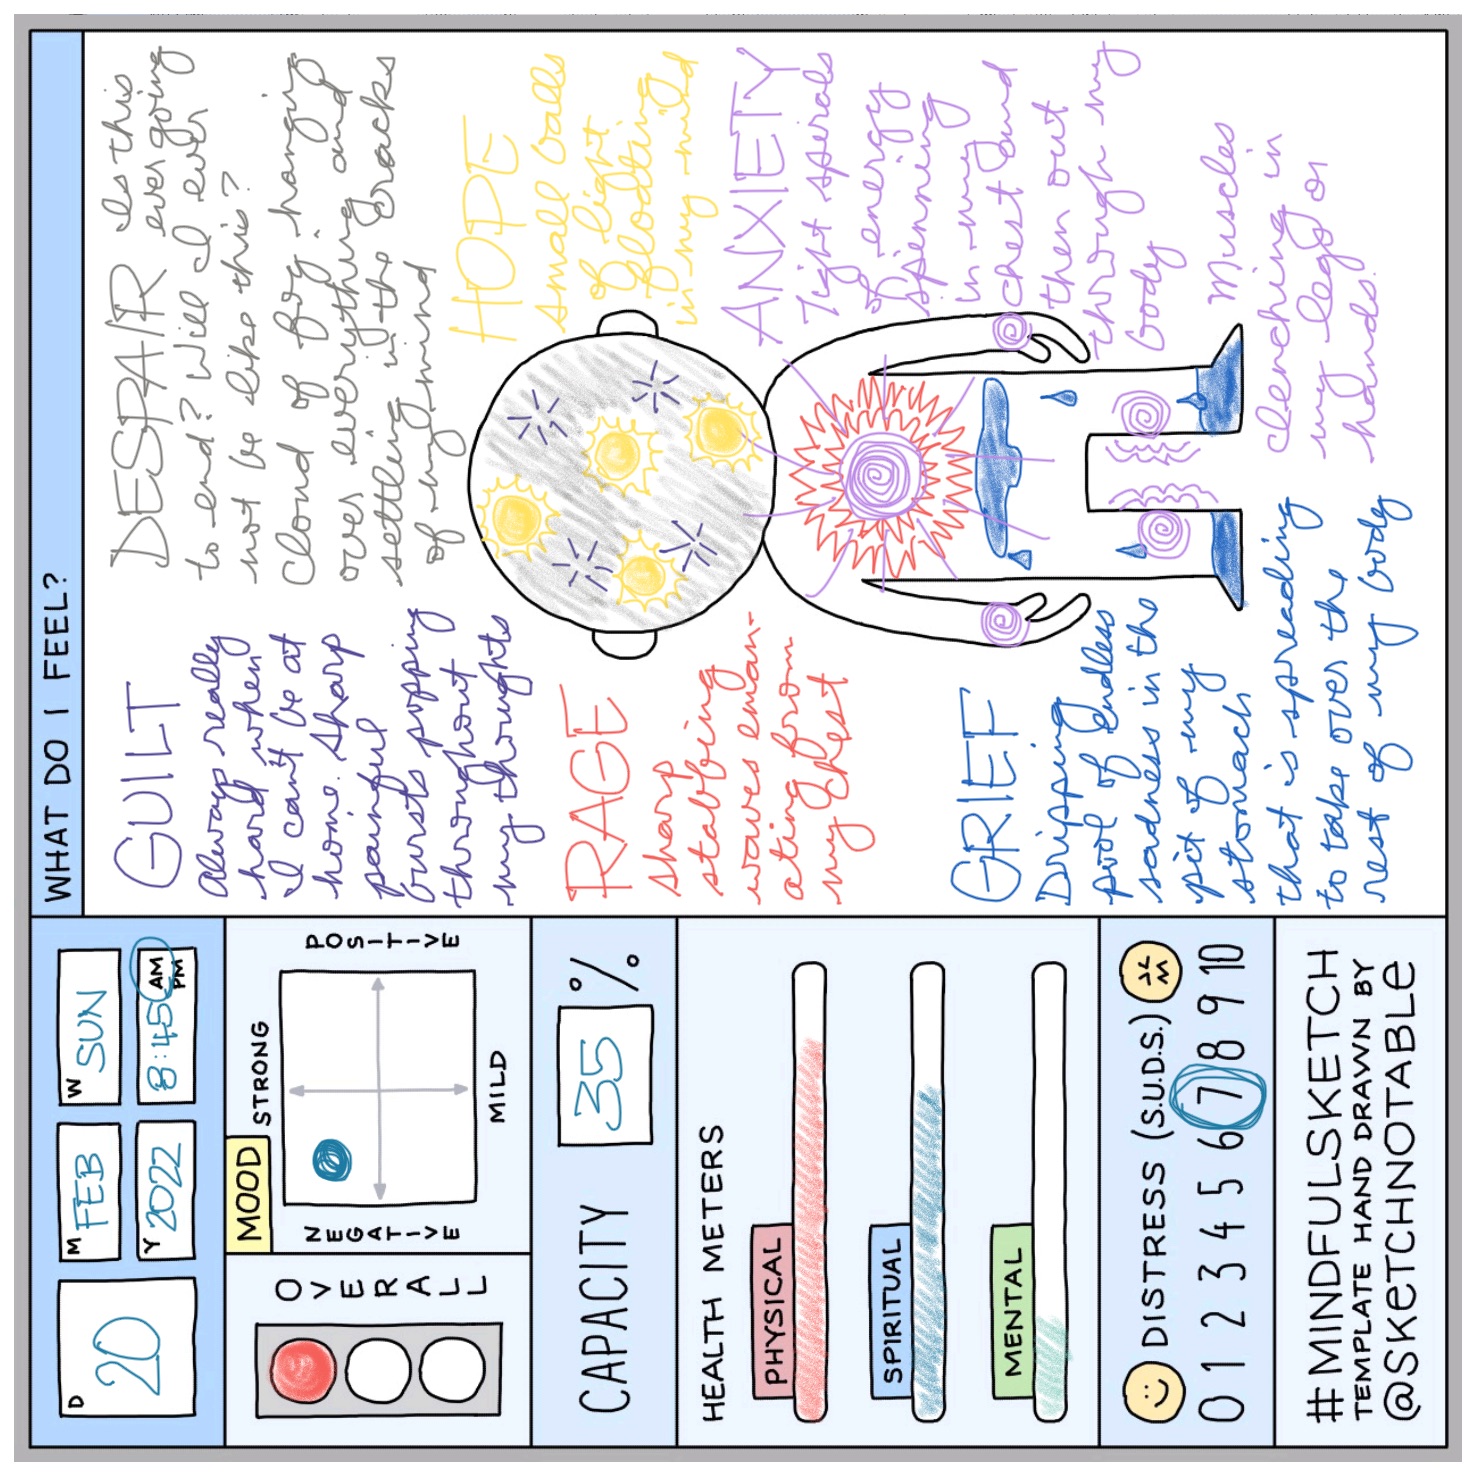 D
20
M
FEB
W
SUN
Y
2022
8:45 AM
PM
OVERALL
MOOD
STRONG
NEGATIVE
POSITIVE
MILD
CAPACITY
35 %
HEALTH METERS
PHYSICAL
SPIRITUAL
MENTAL
DISTRESS (S.U.D.S.)
0 1 2 3 4 5 6 7 8 9 10
#MINDFULSKETCH
TEMPLATE HAND DRAWN BY
@SKETCHNOTABLE
WHAT DO I FEEL?
GUILT
Always really
hard when
I can't be at
home. Sharp
painful
bursts popping
throughout
my thoughts
DESPAIR Is this
ever going
to end? Will I ever
not be like this?
Cloud of fog hanging
over everything and
settling in the cracks
of my mind
HOPE
small balls
of light
floating
in my mind
RAGE
sharp
stabbing
waves eman-
ating from
my chest
ANXIETY
Tight spirals
of energy
spinning
in my
chest and
then out
through my
body
Muscles
clenching in
my legs or
hands.
GRIEF
Dripping
pool of endless
sadness in the
pit of my
stomach
that is spreading
to take over the
rest of my body